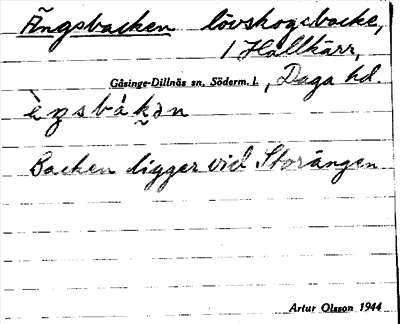 Ängsbacken lövskogsbacke,
/ Hållkärr,
Gåsinge-Dillnäs sn, Söderm. l., Daga hd.
Backen ligger vid Storängen
Artur Olsson 1944